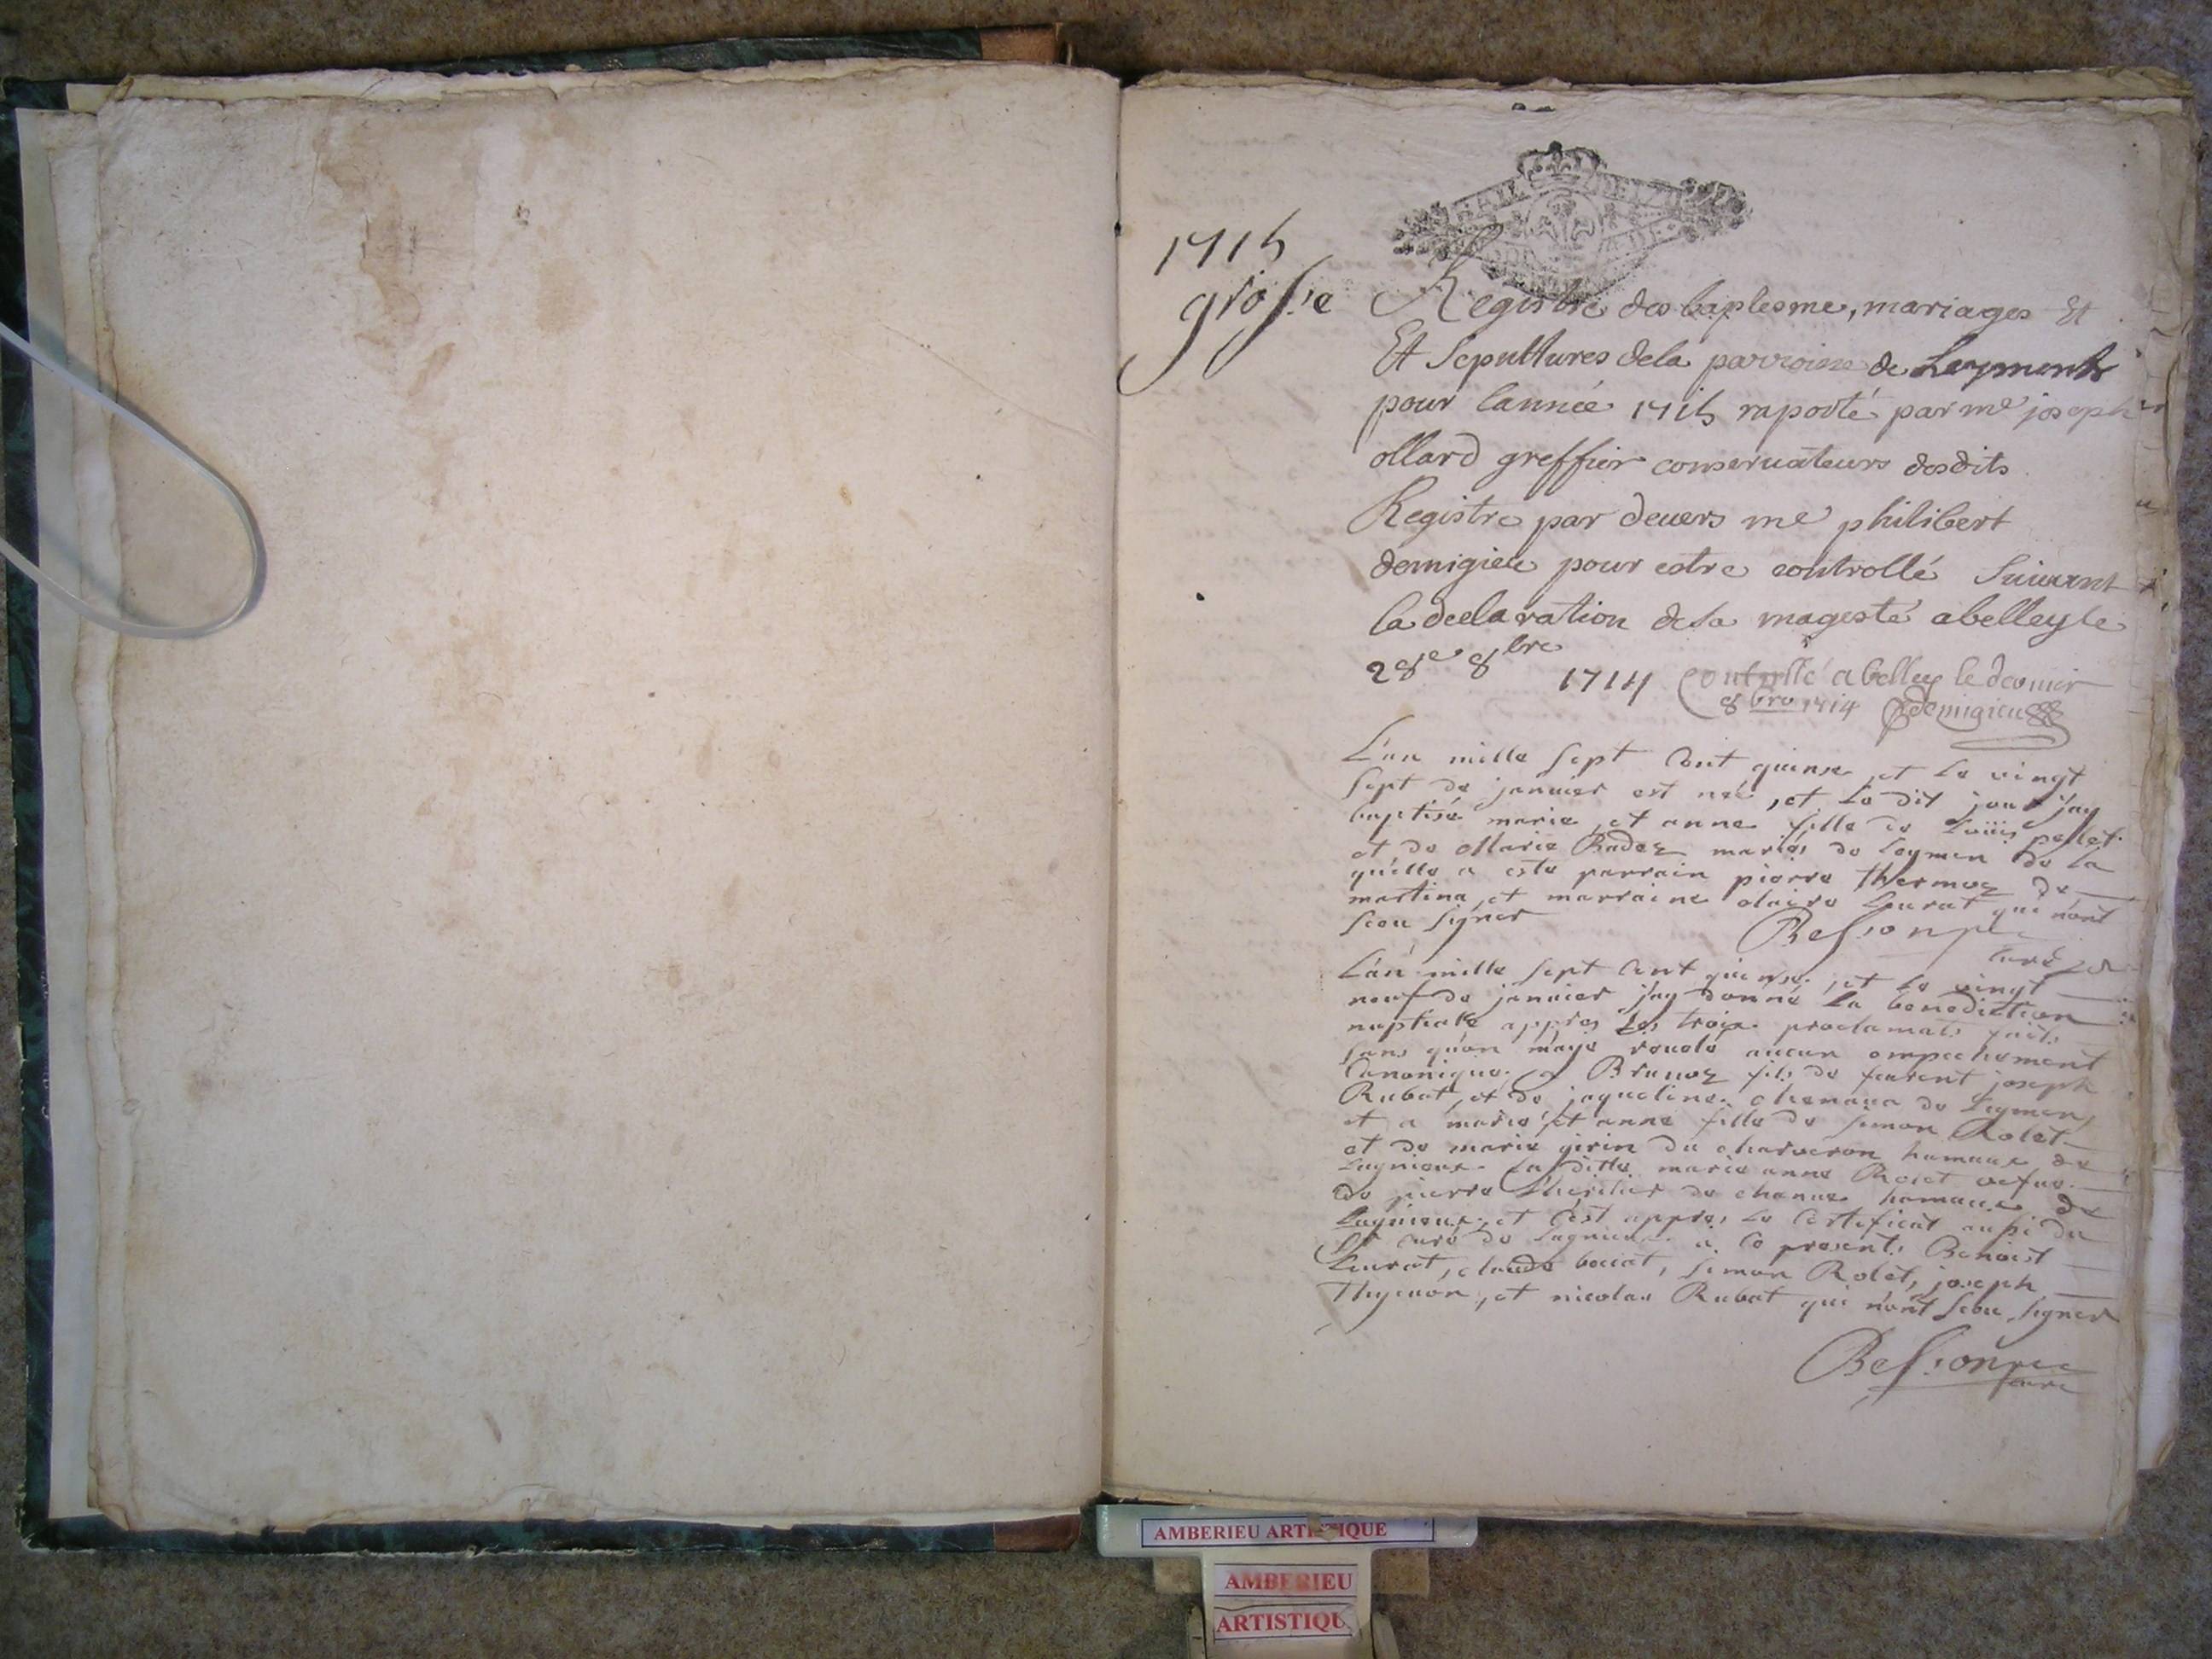 1715
grosse
Registre des baptesme, mariages Et
Et Sepultures dela parroisse de Leyment
pour lannée 1715 raporté par me joseph
ollard greffier conseruateurs desdits
Registre par deuers me philibert
demigieu pour estre controllé Suiuant
la declaration de sa magesté abelley le
28e 8bre 1714
Controllé abelley le dernier
8bre 1714 demigieu
L'an mille sept Cent quinse et le vingt
sept de januier est née, et le dit jour j'ay
baptisé marie et anne fille de Louis pellet
et de Marie Badez mariés de Leymen de la
quelle a este parrain pierre thermoz de
martina, et marraine claire Leurat qui n'ont
sceu signer
Bessonpe
curé
L'an mille sept Cent quinse, et le vingt
neuf de januier j'ay donné la benediction
nuptiale appres les trois proclamats faits
sans qu'on m'aye reuelé aucun empechement
Canonique a Brunoz fils de feurent joseph
Rubat, et de jaqueline de Leymen,
et a marie et anne fille de simon Rolet
et de marie girin du charueron hameau de
Lagnieux la ditte marie anne Rolet vefue
de pierre L'heritier de chanues hameau de
Lagnieux, et c'est appres le Certificat aussi du
Sr curé de Lagnieux a ce presents Benoist
Leurat, claude bouiat, simon Rolet, joseph
Thyenon, et nicolas Rubat qui n'ont sceu signer
Bessonpe
curé
AMBERIEU ARTISTIQUE
AMBERIEU
ARTISTIQU